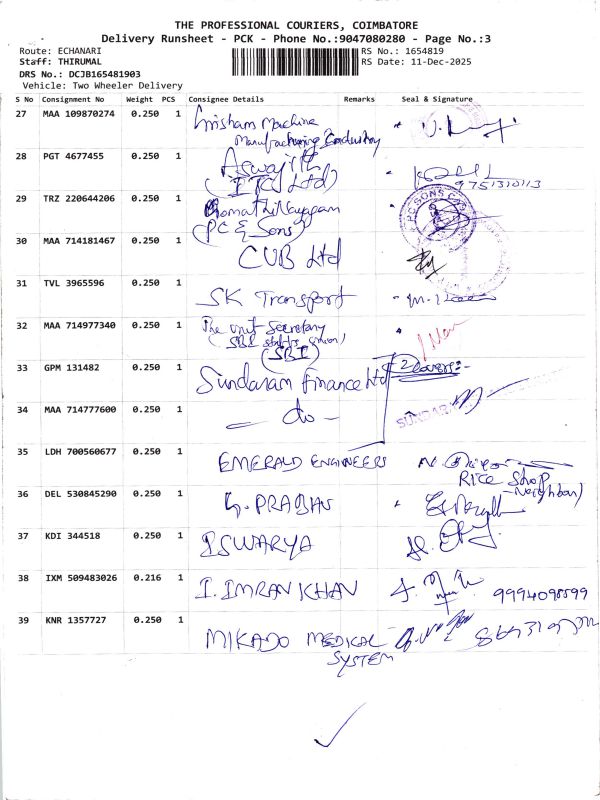 THE PROFESSIONAL COURIERS, COIMBATORE
Delivery Runsheet - PCK - Phone No.:9047080280 - Page No.:3
Route: ECHANARI
RS No.: 1654819
Staff: THIRUMAL
RS Date: 11-Dec-2025
DRS No.: DCJB165481903
Vehicle: Two Wheeler Delivery
S No Consignment No Weight PCS Consignee Details Remarks Seal & Signature
27 MAA 109870274 0.250 1 Machine
Manufacturing Industry
28 PGT 4677455 0.250 1
(ITC Ltd)
9751310113
29 TRZ 220644206 0.250 1
(PC & Sons)
P.C SONS
30 MAA 714181467 0.250 1 CUB Ltd
31 TVL 3965596 0.250 1 SK Transport
32 MAA 714977340 0.250 1 The unit Secretary
(SBI staffs union)
(SBI)
33 GPM 131482 0.250 1 Sundaram Finance Ltd 2 covers:-
34 MAA 714777600 0.250 1 - do - SUNDARAM
35 LDH 700560677 0.250 1 EMERALD ENGINEERS
Rice Shop
Neighbour)
36 DEL 530845290 0.250 1 G. PRABHU
37 KDI 344518 0.250 1 ISWARYA
38 IXM 509483026 0.216 1 I. IMRAN KHAN 9994098599
39 KNR 1357727 0.250 1 MIKADO MEDICAL
SYSTEM